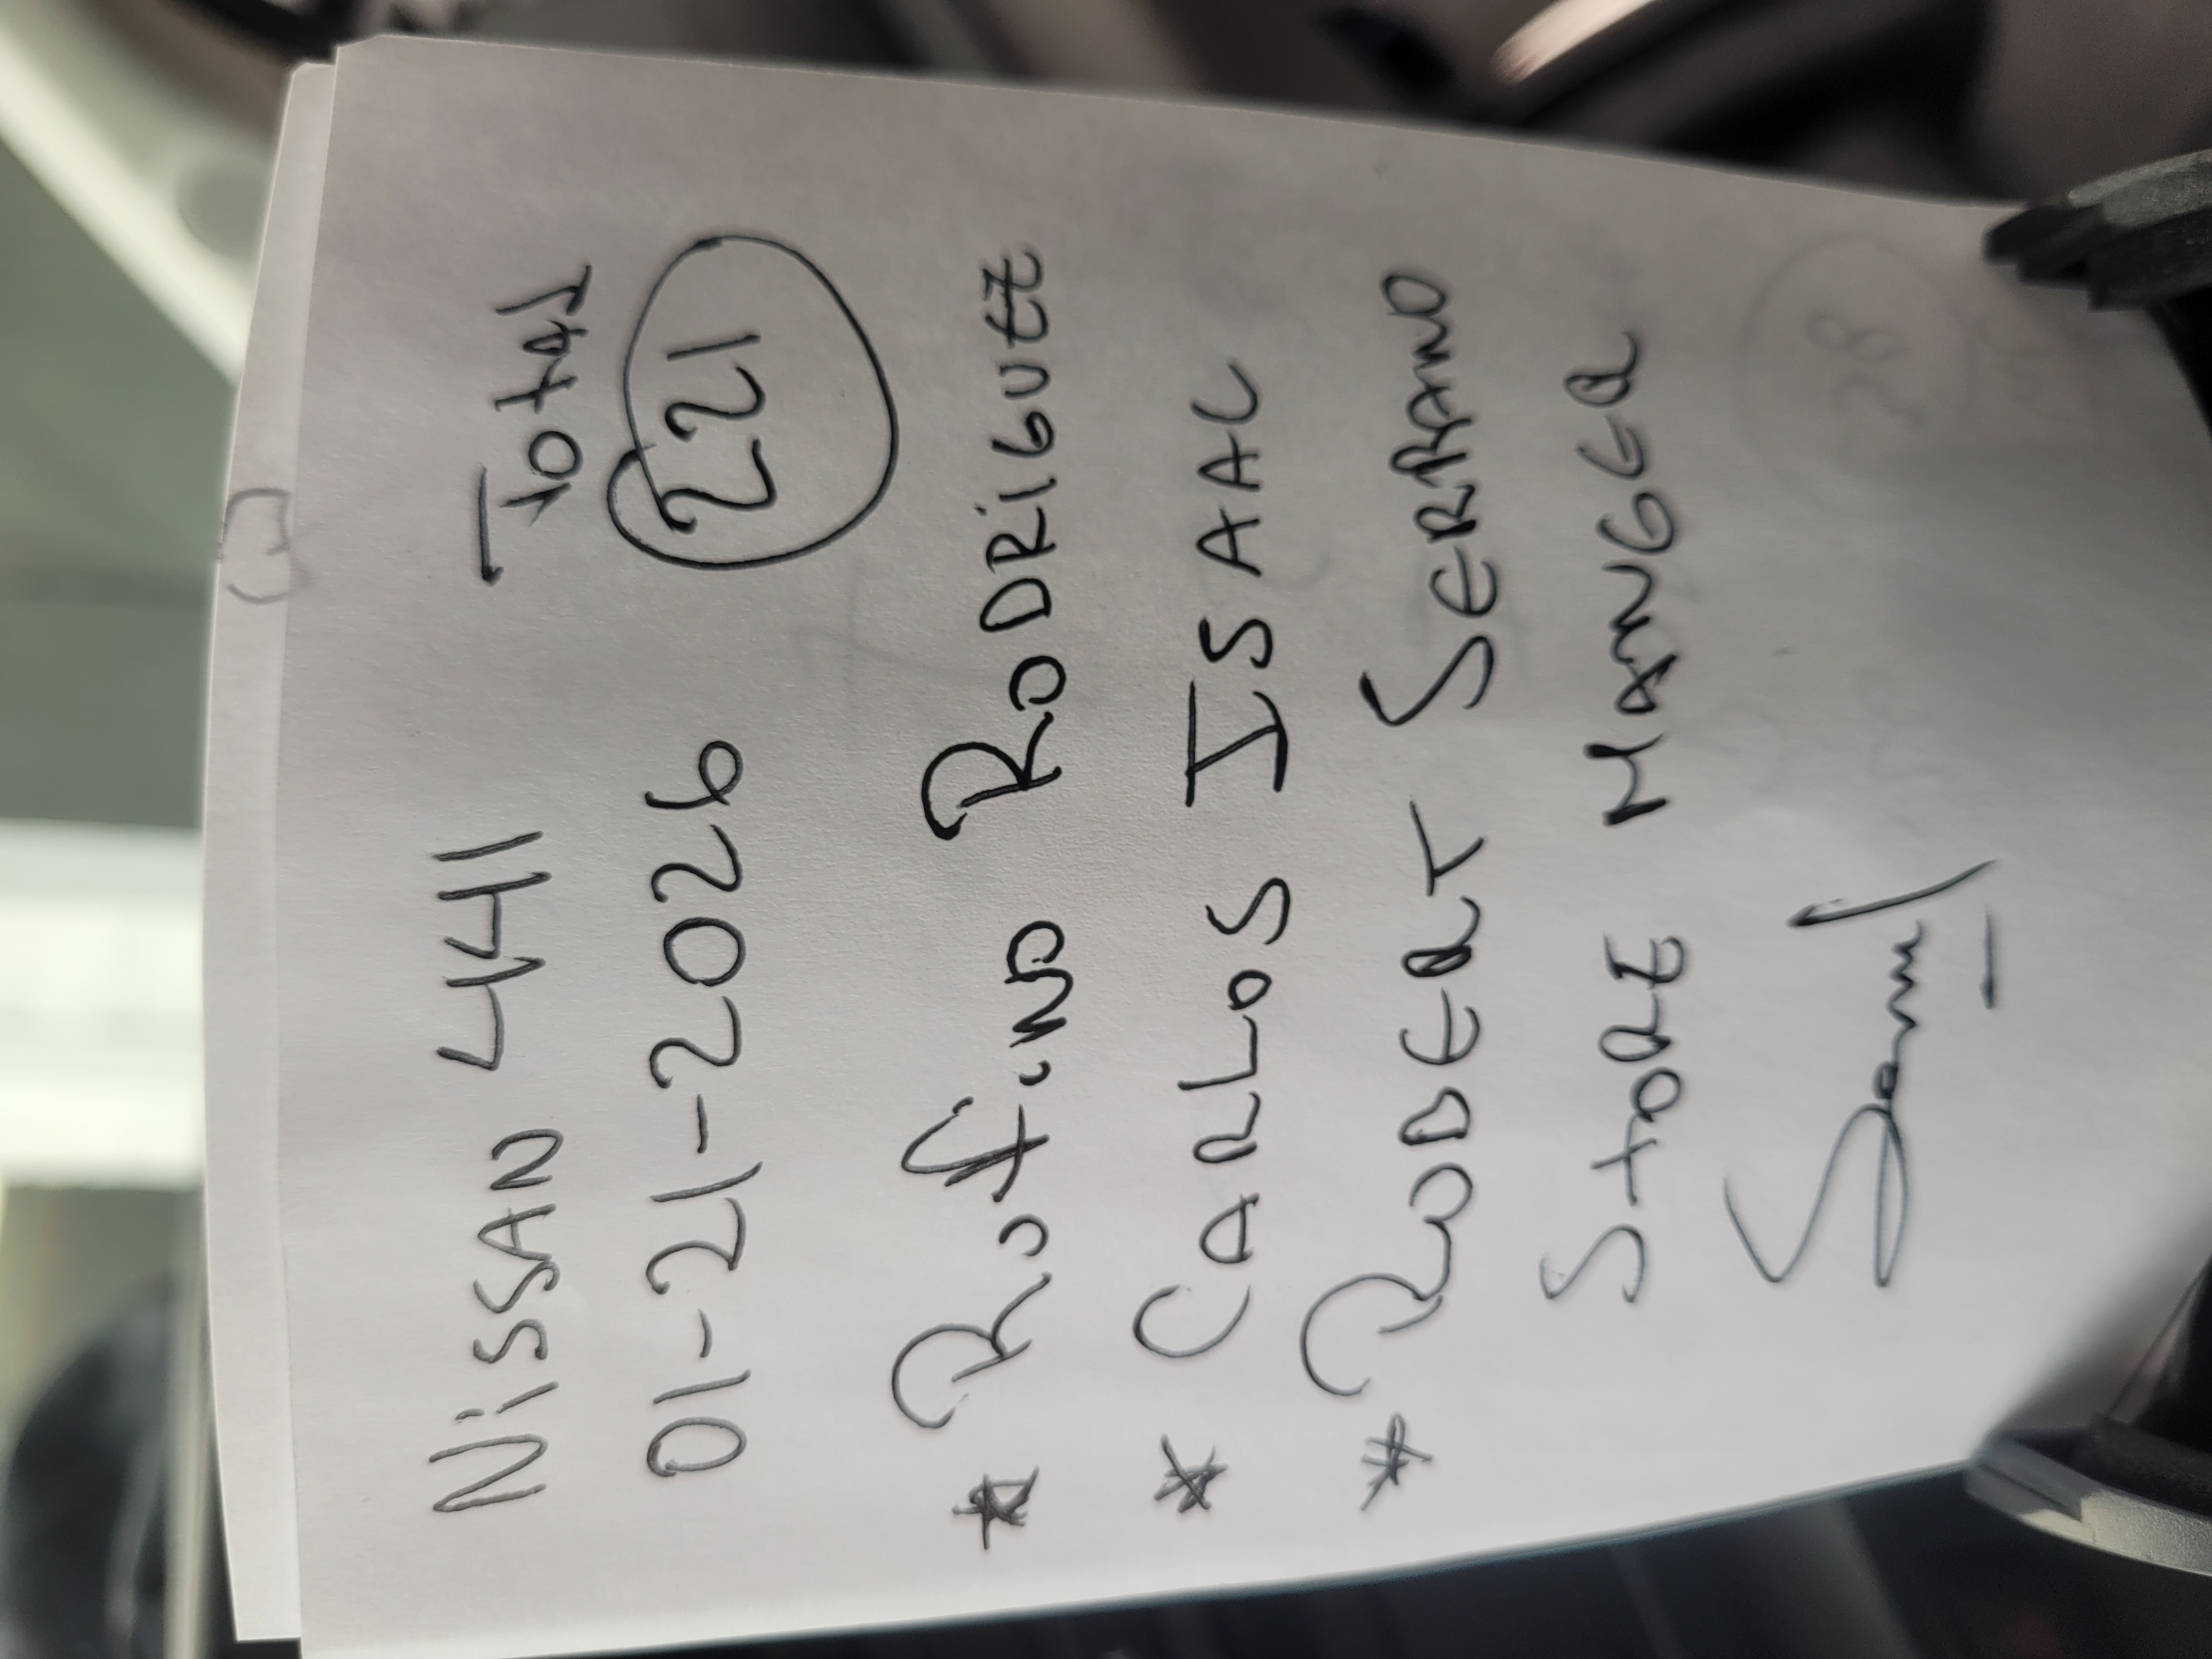 NiSSAN 441 Total
01-21-2026 221
* Rufino RODRiGUEZ
* CARLOS ISAAC
* RObERT SERRANO
StORE MANGER